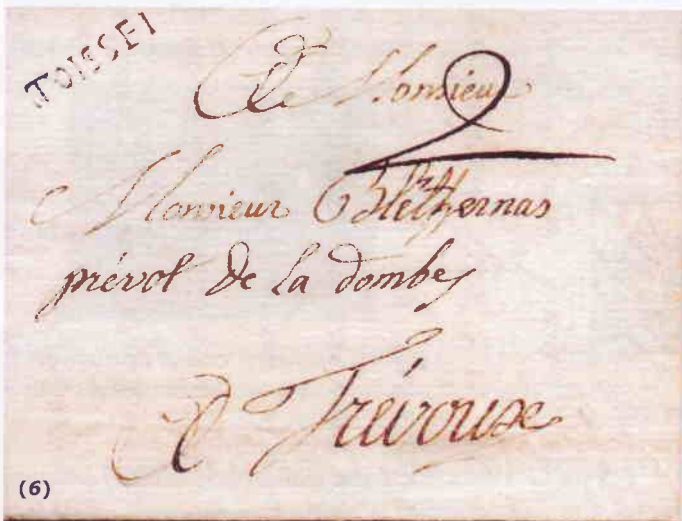 TOISSEI
A Monsieur
2
Monsieur
prévot de la dombes
A Trévoux
(6)